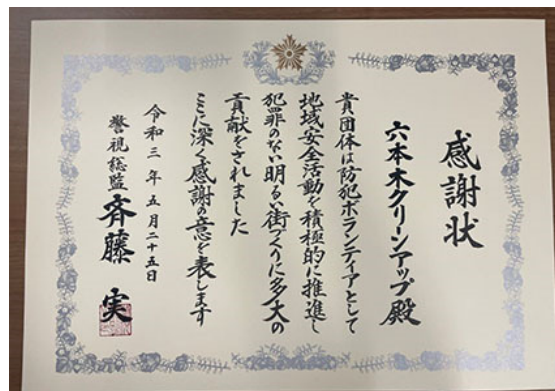 感謝状
六本木クリーンアップ殿
貴団体は防犯ボランティアとして
地域安全活動を積極的に推進し
犯罪のない明るい街づくりに多大の
貢献をされました
ここに深く感謝の意を表します
令和三年五月二十五日
警視総監 斉藤 実